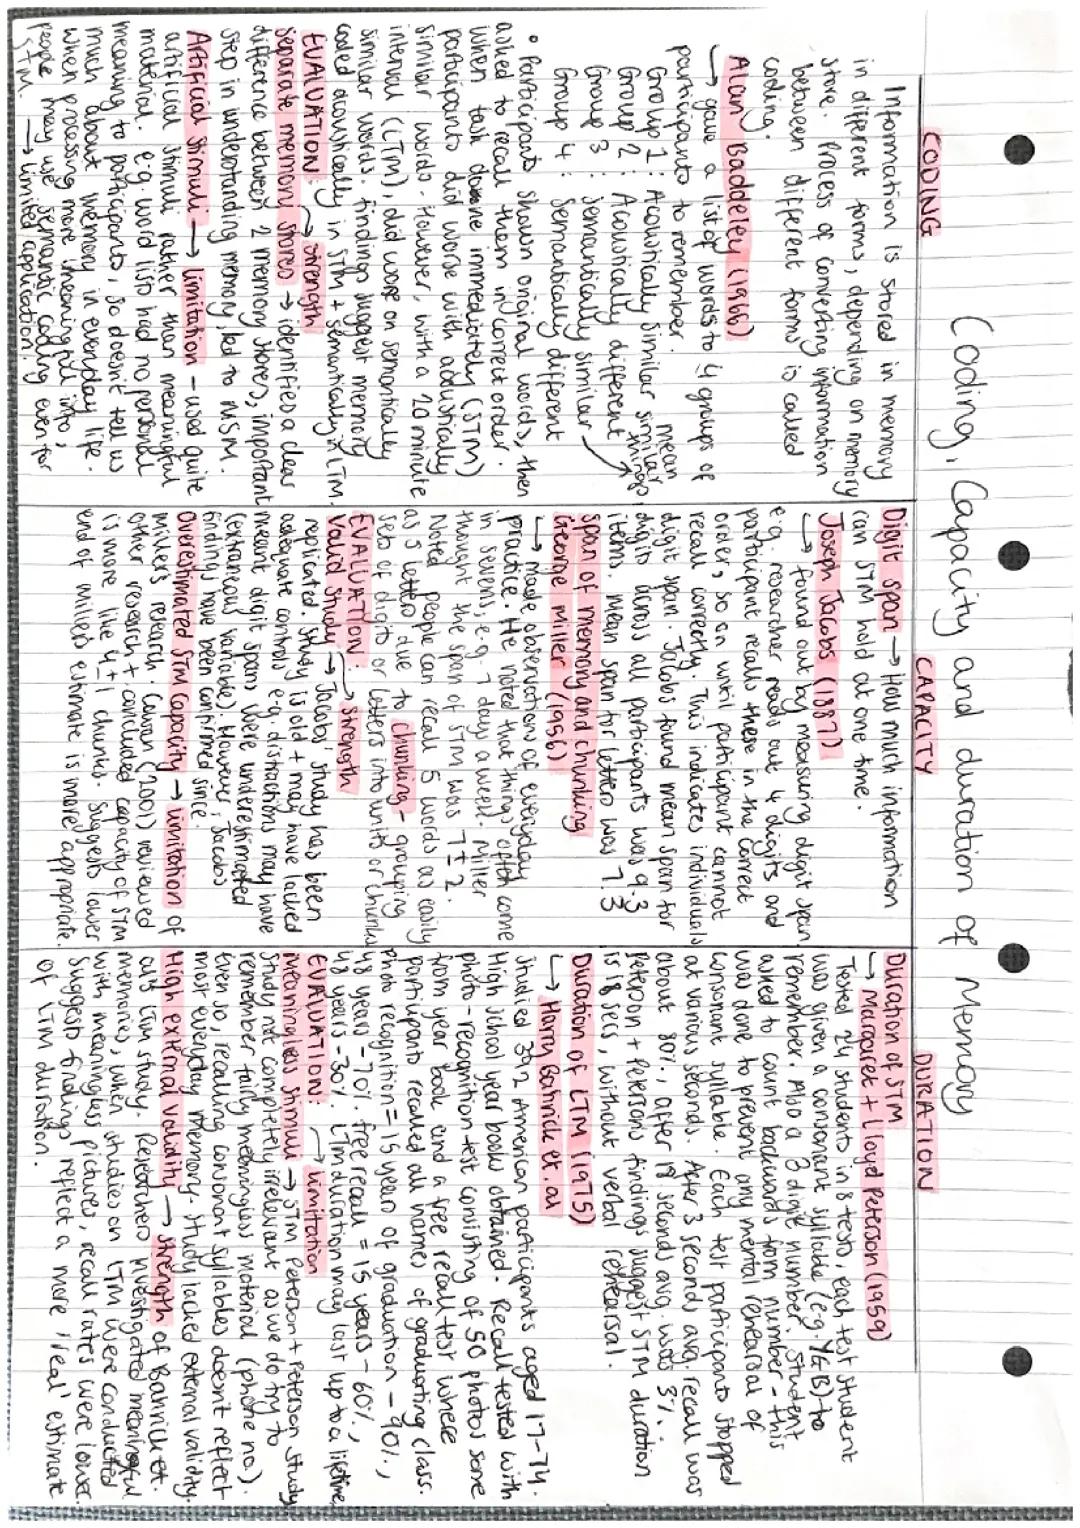 Coding, Capacity and duration of Memory
CODING
Information is stored in memory
in different forms, depending on memory
store. Process of converting information
between different forms is called
coding.
Alan Baddeley (1966)
→ gave a list of words to 4 groups of
participants to remember.
Group 1: Acoustically similar
Group 2: Acoustically different
Group 3: Semantically similar
Group 4: Semantically different
mean
similar
things
• Participants shown original words, then
asked to recall them in correct order.
When task done immediately (STM)
participants did worse with acoustically
similar words. However, with a 20 minute
interval (LTM), did worse on semantically
similar words. Findings suggest memory
coded acoustically in STM + semantically in LTM.
EVALUATION: → strength
Separate memory stores → identifies a clear
difference between 2 memory stores, important
step in understanding memory, led to MSM.
Artificial Stimuli → limitation - used quite
artificial stimuli rather than meaningful
material. e.g. word lists had no personal
meaning to participants, so doesn't tell us
much about memory in everyday life.
When processing more meaningful info,
people may use semantic coding even for
STM. → limited application.
CAPACITY
Digit span → How much information
can STM hold at one time.
Joseph Jacobs (1887)
→ found out by measuring digit span
e.g. researcher reads out 4 digits and
participant recalls these in the correct
order, so on until participant cannot
recall correctly. This indicates individuals
digit span. Jacobs found mean span for
digits across all participants was 9.3
items. Mean span for letters was 7.3
Span of memory and chunking
George Miller (1956)
→ made observations of everyday
practice. He noted that things often come
in sevens, e.g. 7 day a week. Miller
thought the span of STM was 7±2.
Noted people can recall 5 words as easily
as 5 letters due to chunking - grouping
sets of digits or letters into units or chunks
EVALUATION: → strength
Valid Study → Jacobs' study has been
replicated. Study is old + may have lacked
adequate controls e.g. distractions may have
meant digit spans were underestimated
(extraneous variable). However, Jacobs
findings have been confirmed since.
Overestimated STM capacity → limitation of
Millers research. Cowan (2001) reviewed
other research + concluded capacity of STM
is more like 4±1 chunks. Suggests lower
end of Millers estimate is more appropriate.
DURATION
Duration of STM
→ Margaret + Lloyd Peterson (1959)
Tested 24 students in 8 tests, each test student
was given a consonant syllable (e.g. YGB) to
remember. Also a 3 digit number. Student
asked to count backwards from number - this
was done to prevent any mental rehearsal of
consonant syllable. Each test participants stopped
at various seconds. After 3 seconds avg. recall was
about 80%, after 18 seconds avg. was 3%.
Peterson + Petersons findings suggest STM duration
is 18 secs, without verbal rehearsal.
Duration of LTM (1975)
→ Harry Bahrick et. al
Studied 392 American participants aged 17-74.
High school year books obtained. Recall tested with
photo-recognition test consisting of 50 photos some
from year book and a free recall test where
participants recalled all names of graduating class.
Photo recognition = 15 years of graduation - 90%,
48 years - 70%. Free recall = 15 years - 60%,
48 years - 30%. LTM duration may last up to a lifetime.
EVALUATION: → limitation
Meaningless stimuli → STM Peterson + Peterson study
Study not completely irrelevant as we do try to
remember fairly meaningless material (phone no.)
Even so, recalling consonant syllables doesn't reflect
most everyday memory. Study lacked external validity.
High external validity → strength of Bahrick et.
al's LTM study. Researchers investigated meaningful
memories, when studies on LTM were conducted
with meaningless pictures, recall rates were lower.
Suggests findings reflect a more 'real' estimate
of LTM duration.